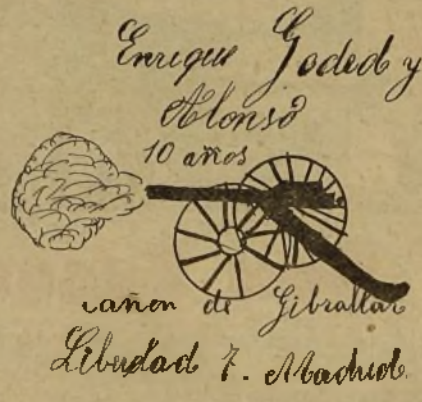 Enrique Goded y
Alonso
10 años
cañon de Gibraltar
Libertad 7. Madrid.